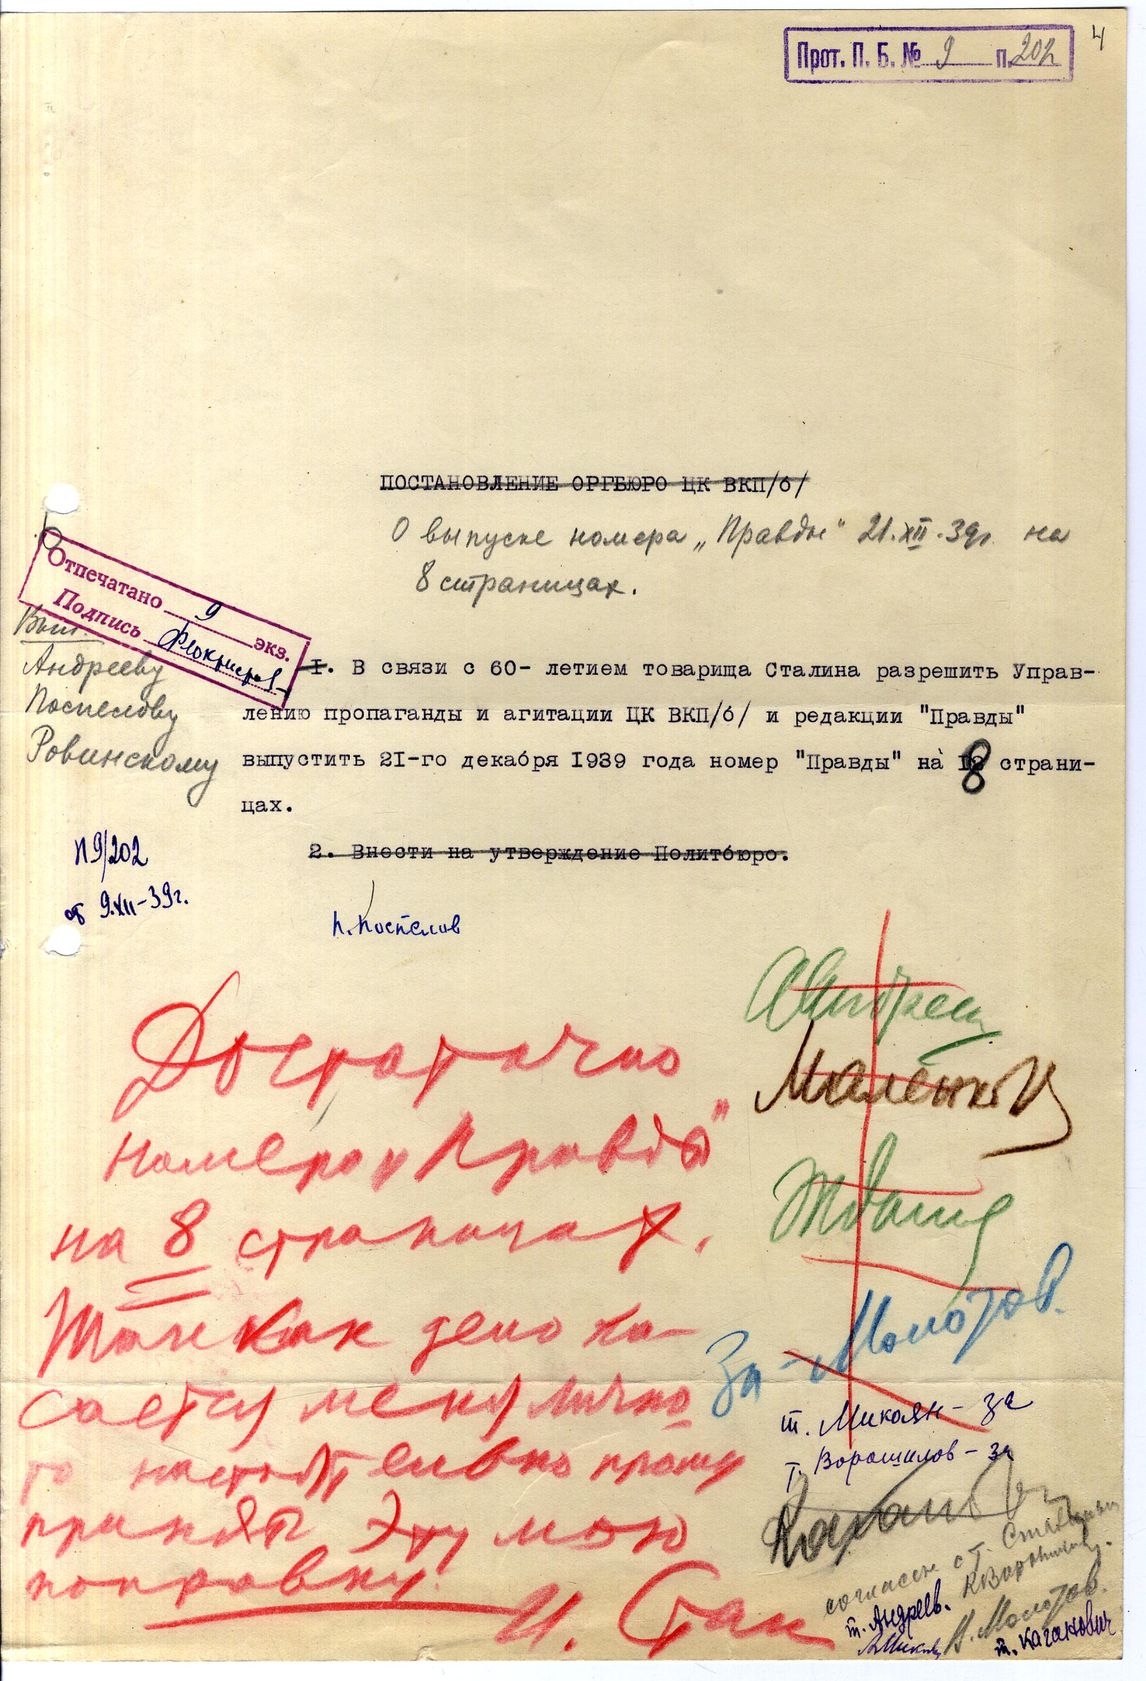 4
Прот. П. Б. № 9 п. 202
ПОСТАНОВЛЕНИЕ ОРГБЮРО ЦК ВКП/б/
О выпуске номера „Правды" 21.XII.39г. на
8 страницах.
Отпечатано 9 экз.
Подпись
Вып.
Андрееву
Поспелову
Ровинскому
1. В связи с 60- летием товарища Сталина разрешить Управ-
лению пропаганды и агитации ЦК ВКП/б/ и редакции "Правды"
выпустить 21-го декабря 1939 года номер "Правды" на 8 страни-
цах.
2. Внести на утверждение Политбюро.
П9/202
от 9.XII-39г.
П. Поспелов
Достаточно
номера „Правды"
на 8 страницах.
Так как дело ка-
сается меня лично
то настоятельно прошу
принять эту мою
поправку.
И. Стал
Андреев
Маленков
Жданов
За - Молотов.
т. Микоян - за
т. Ворошилов - за
Каганович
согласен с т. Сталиным
К Ворошилов.
т. Андреев.
В. Молотов.
А Микоян
т. Каганович